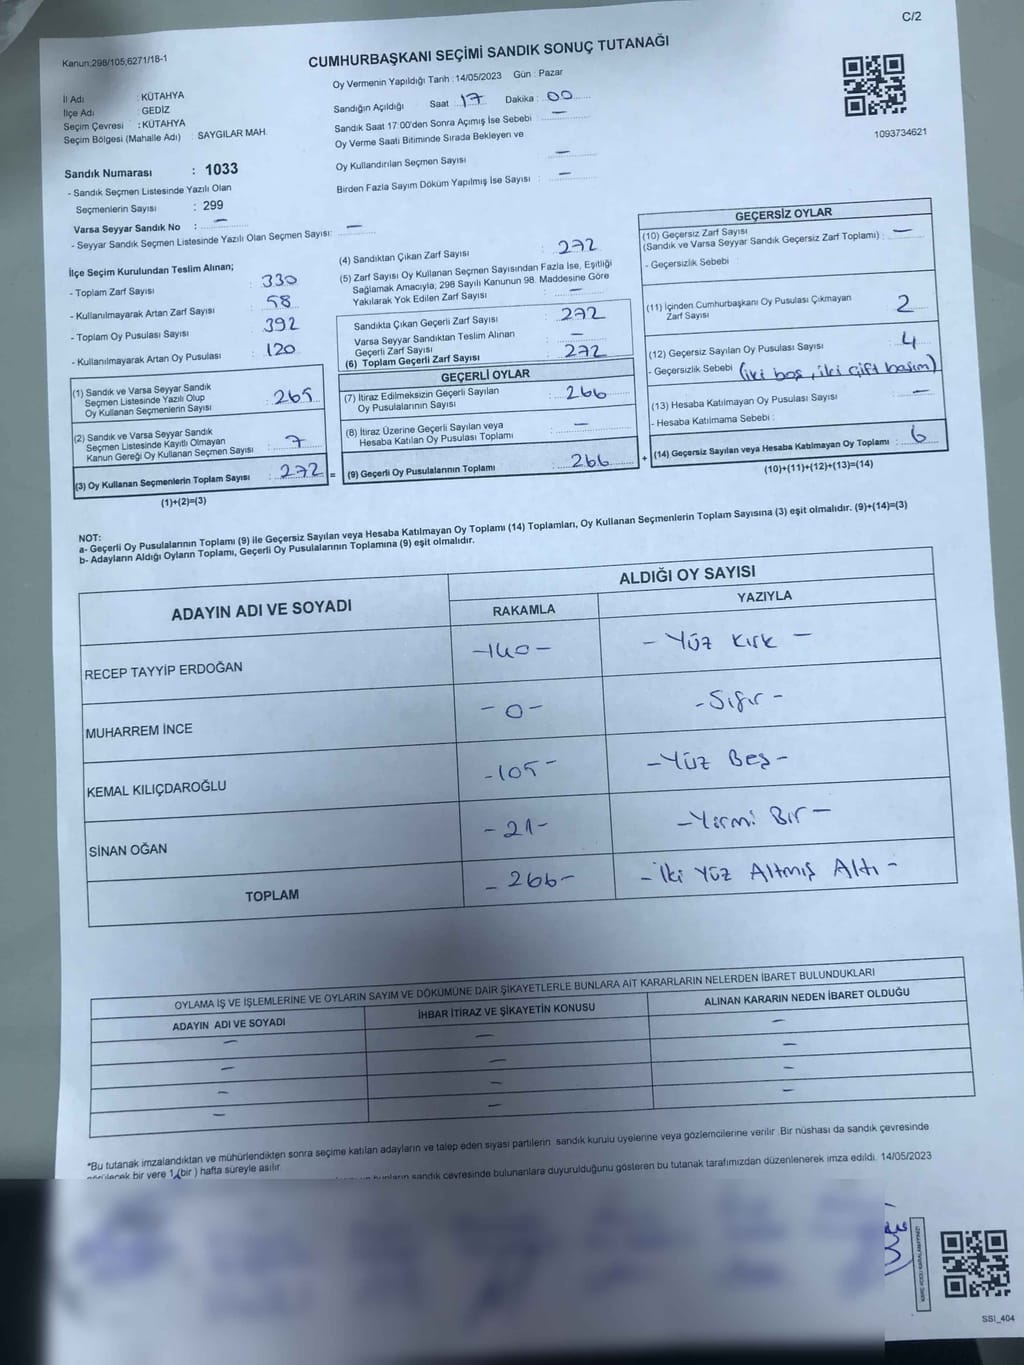 C/2
Kanun;298/105,6271/18-1
CUMHURBAŞKANI SEÇİMİ SANDIK SONUÇ TUTANAĞI
Oy Vermenin Yapıldığı Tarih : 14/05/2023 Gün : Pazar
İl Adı : KÜTAHYA
İlçe Adı : GEDİZ
Seçim Çevresi : KÜTAHYA
Seçim Bölgesi (Mahalle Adı) : SAYGILAR MAH.
Sandığın Açıldığı Saat : 17 Dakika : 00
Sandık Saat 17:00'den Sonra Açımış İse Sebebi : —
Oy Verme Saati Bitiminde Sırada Bekleyen ve
Oy Kullandırılan Seçmen Sayısı : —
Birden Fazla Sayım Döküm Yapılmış İse Sayısı : —
1093734621
Sandık Numarası : 1033
- Sandık Seçmen Listesinde Yazılı Olan
Seçmenlerin Sayısı : 299
Varsa Seyyar Sandık No : —
- Seyyar Sandık Seçmen Listesinde Yazılı Olan Seçmen Sayısı: —
İlçe Seçim Kurulundan Teslim Alınan;
- Toplam Zarf Sayısı : 330
- Kullanılmayarak Artan Zarf Sayısı : 58
- Toplam Oy Pusulası Sayısı : 392
- Kullanılmayarak Artan Oy Pusulası : 120
(1) Sandık ve Varsa Seyyar Sandık
Seçmen Listesinde Yazılı Olup
Oy Kullanan Seçmenlerin Sayısı : 265
(2) Sandık ve Varsa Seyyar Sandık
Seçmen Listesinde Kayıtlı Olmayan
Kanun Gereği Oy Kullanan Seçmen Sayısı : 7
(3) Oy Kullanan Seçmenlerin Toplam Sayısı : 272 =
(1)+(2)=(3)
(4) Sandıktan Çıkan Zarf Sayısı : 272
(5) Zarf Sayısı Oy Kullanan Seçmen Sayısından Fazla İse, Eşitliği
Sağlamak Amacıyla; 298 Sayılı Kanunun 98. Maddesine Göre
Yakılarak Yok Edilen Zarf Sayısı : —
Sandıkta Çıkan Geçerli Zarf Sayısı : 272
Varsa Seyyar Sandıktan Teslim Alınan
Geçerli Zarf Sayısı : —
(6) Toplam Geçerli Zarf Sayısı : 272
GEÇERLİ OYLAR
(7) İtiraz Edilmeksizin Geçerli Sayılan
Oy Pusulalarının Sayısı : 266
(8) İtiraz Üzerine Geçerli Sayılan veya
Hesaba Katılan Oy Pusulası Toplamı : —
(9) Geçerli Oy Pusulalarının Toplamı : 266 +
GEÇERSİZ OYLAR
(10) Geçersiz Zarf Sayısı
(Sandık ve Varsa Seyyar Sandık Geçersiz Zarf Toplamı) : —
- Geçersizlik Sebebi :
(11) İçinden Cumhurbaşkanı Oy Pusulası Çıkmayan
Zarf Sayısı : 2
(12) Geçersiz Sayılan Oy Pusulası Sayısı : 4
- Geçersizlik Sebebi : (iki boş, iki çift basım)
(13) Hesaba Katılmayan Oy Pusulası Sayısı : —
- Hesaba Katılmama Sebebi :
(14) Geçersiz Sayılan veya Hesaba Katılmayan Oy Toplamı : 6
(10)+(11)+(12)+(13)=(14)
NOT:
a- Geçerli Oy Pusulalarının Toplamı (9) ile Geçersiz Sayılan veya Hesaba Katılmayan Oy Toplamı (14) Toplamları, Oy Kullanan Seçmenlerin Toplam Sayısına (3) eşit olmalıdır. (9)+(14)=(3)
b- Adayların Aldığı Oyların Toplamı, Geçerli Oy Pusulalarının Toplamına (9) eşit olmalıdır.
ADAYIN ADI VE SOYADI
ALDIĞI OY SAYISI
RAKAMLA YAZIYLA
RECEP TAYYİP ERDOĞAN -140- - Yüz Kırk -
MUHARREM İNCE -0- -Sıfır-
KEMAL KILIÇDAROĞLU -105- -Yüz Beş-
SİNAN OĞAN -21- -Yirmi Bir-
TOPLAM -266- -İki Yüz Altmış Altı-
OYLAMA İŞ VE İŞLEMLERİNE VE OYLARIN SAYIM VE DÖKÜMÜNE DAİR ŞİKAYETLERLE BUNLARA AİT KARARLARIN NELERDEN İBARET BULUNDUKLARI
ADAYIN ADI VE SOYADI İHBAR İTİRAZ VE ŞİKAYETİN KONUSU ALINAN KARARIN NEDEN İBARET OLDUĞU
— — —
— — —
— — —
— — —
*Bu tutanak imzalandıktan ve mühürlendikten sonra seçime katılan adayların ve talep eden siyasi partilerin sandık kurulu üyelerine veya gözlemcilerine verilir .Bir nüshası da sandık çevresinde
görülecek bir yere 1 (bir ) hafta süreyle asılır
bunların sandık çevresinde bulunanlara duyurulduğunu gösteren bu tutanak tarafımızdan düzenlenerek imza edildi. 14/05/2023
SSI_404